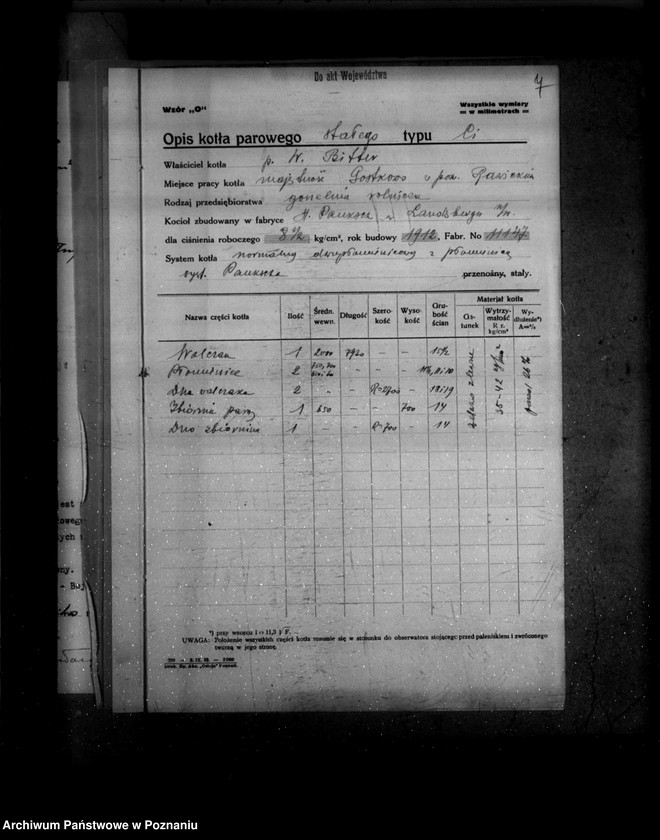 Do akt Województwa
7
Wzór „O"
Wszystkie wymiary
= w milimetrach =
Opis kotła parowego stałego typu Ci
Właściciel kotła p. W. Bitter
Miejsce pracy kotła majętność Gostkowo pow. Rawicki
Rodzaj przedsiębiorstwa gorzelnia rolnicza
Kocioł zbudowany w fabryce H. Pauksch Landsberg a/W.
dla ciśnienia roboczego 8½ kg/cm², rok budowy 1912, Fabr. No 11137
System kotła normalny dwupłomienicowy z płomienicą
syst. Pauksch przenośny, stały.
Nazwa części kotła Ilość Średn. wewn. Długość Szerokość Wysokość Grubość ścian Materjał kotła
Gatunek Wytrzymałość R z. kg/cm² Wydłużenie*) A=%
Walczak 1 2000 7920 — — 15½
Płomienice 2 — —
Dna walczaka 2 - - R=2700 - 18i19
Zbiornik pary 1 650 - - 700 14
Dno zbiornika 1 - - R=700 - 14
żelazo zlewne
35-42
26%
*) przy wzorze l = 11,3 √F.
UWAGA: Położenie wszystkich części kotła rozumie się w stosunku do obserwatora stojącego przed paleniskiem i zwróconego
twarzą w jego stronę.
Archiwum Państwowe w Poznaniu